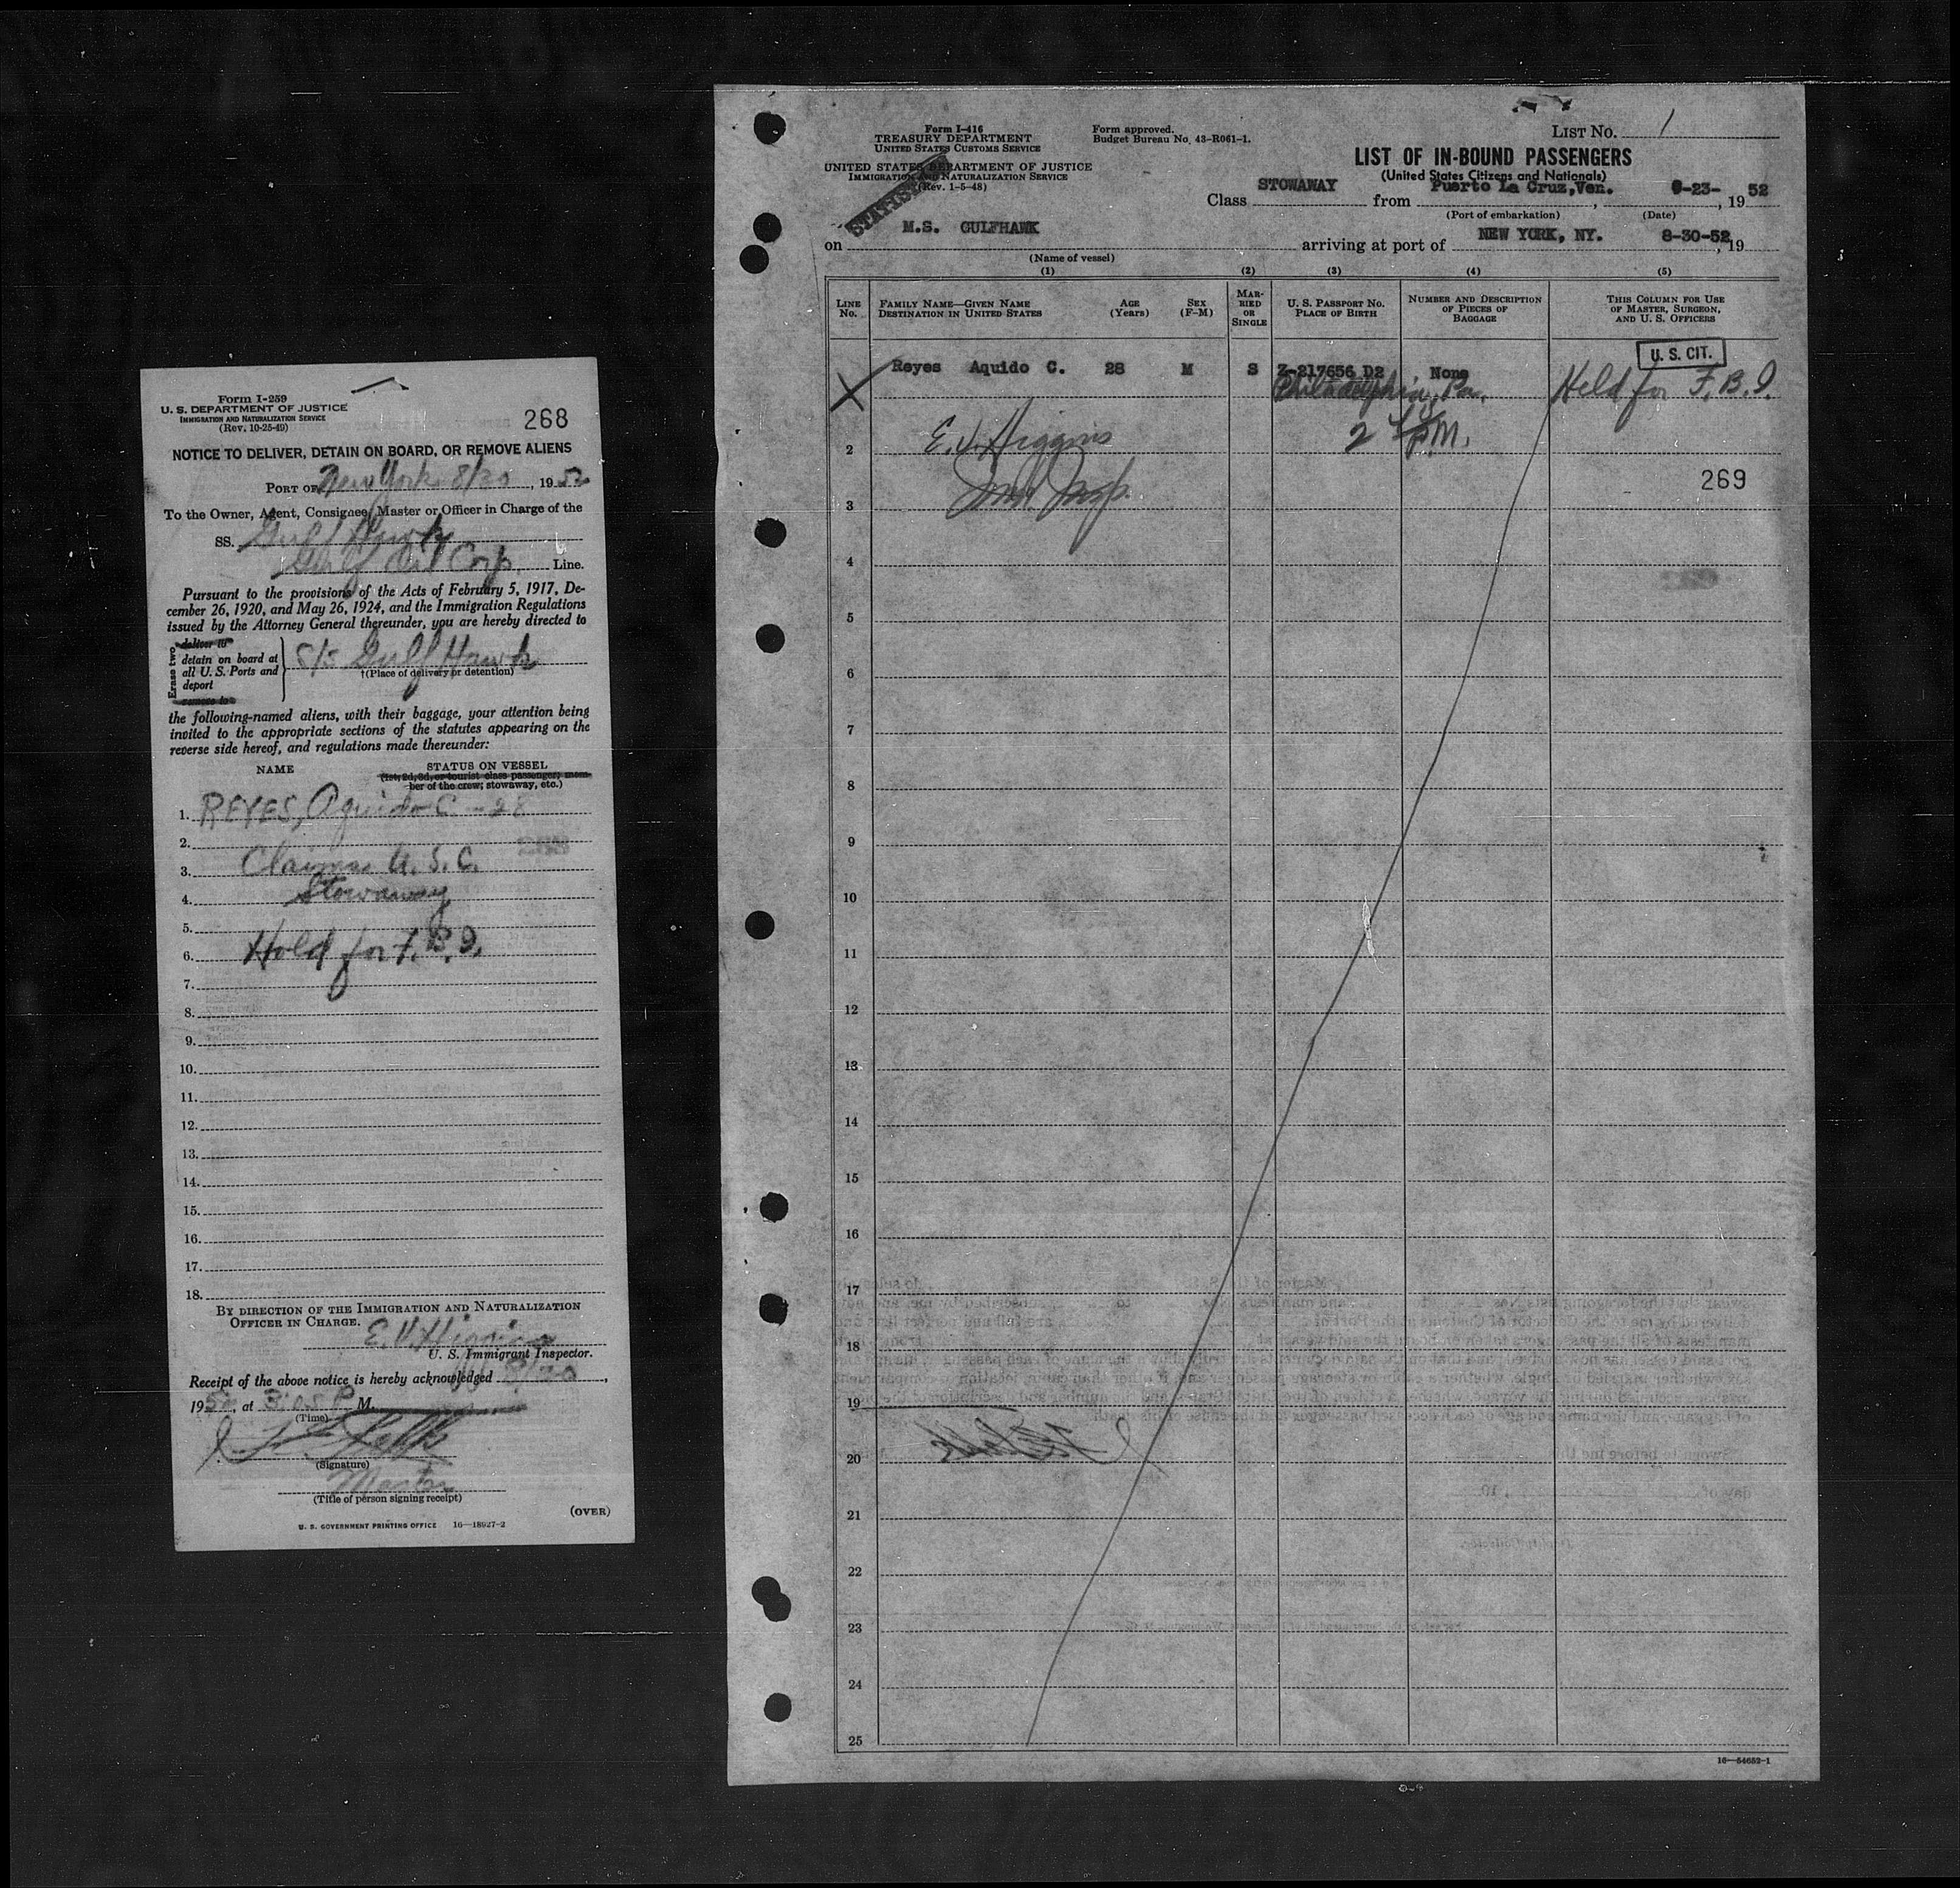 Form I-259
U. S. DEPARTMENT OF JUSTICE
IMMIGRATION AND NATURALIZATION SERVICE
(Rev. 10-25-49)
268
NOTICE TO DELIVER, DETAIN ON BOARD, OR REMOVE ALIENS
PORT OF New York 8/30, 1952
To the Owner, Agent, Consignee, Master or Officer in Charge of the
SS. Gulf Hawk
Gulf Oil Corp. Line.
Pursuant to the provisions of the Acts of February 5, 1917, De-
cember 26, 1920, and May 26, 1924, and the Immigration Regulations
issued by the Attorney General thereunder, you are hereby directed to
Erase two
deliver to
detain on board at
all U. S. Ports and
deport
remove to
S/S Gulf Hawk
†(Place of delivery or detention)
the following-named aliens, with their baggage, your attention being
invited to the appropriate sections of the statutes appearing on the
reverse side hereof, and regulations made thereunder:
NAME STATUS ON VESSEL
(1st, 2d, 3d, or tourist class passenger; mem-
ber of the crew; stowaway, etc.)
1. REYES, Aguido C. - 28
2.
3. Claims U. S. C.
4. Stowaway
5.
6. Hold for F. B. I.
7.
8.
9.
10.
11.
12.
13.
14.
15.
16.
17.
18.
BY DIRECTION OF THE IMMIGRATION AND NATURALIZATION
OFFICER IN CHARGE.
E. V. Higgins
U. S. Immigrant Inspector.
Receipt of the above notice is hereby acknowledged 8/30,
1952, at 3:05 P. M.
(Time)
(Signature)
Master
(Title of person signing receipt)
(OVER)
U. S. GOVERNMENT PRINTING OFFICE 16—18927-2
Form I-416
TREASURY DEPARTMENT
UNITED STATES CUSTOMS SERVICE
UNITED STATES DEPARTMENT OF JUSTICE
IMMIGRATION AND NATURALIZATION SERVICE
(Rev. 1-5-48)
Form approved.
Budget Bureau No. 43-R061-1.
LIST NO. 1
LIST OF IN-BOUND PASSENGERS
(United States Citizens and Nationals)
Class STOWAWAY from Puerto La Cruz, Ven., 8-23-, 1952
(Port of embarkation) (Date)
on M.S. GULFHAWK arriving at port of NEW YORK, NY. 8-30-52, 19
(Name of vessel)
(1) (2) (3) (4) (5)
LINE
NO.
FAMILY NAME—GIVEN NAME
DESTINATION IN UNITED STATES
AGE
(Years)
SEX
(F-M)
MAR-
RIED
OR
SINGLE
U. S. PASSPORT NO.
PLACE OF BIRTH
NUMBER AND DESCRIPTION
OF PIECES OF
BAGGAGE
THIS COLUMN FOR USE
OF MASTER, SURGEON,
AND U. S. OFFICERS
U. S. CIT.
Reyes Aquido C. 28 M S Z-217656 D2 None
Philadelphia, Pa. Held for F. B. I.
E. V. Higgins
Imm. Insp.
269
2
3
4
5
6
7
8
9
10
11
12
13
14
15
16
17
18
19
20
21
22
23
24
25
16—54652-1